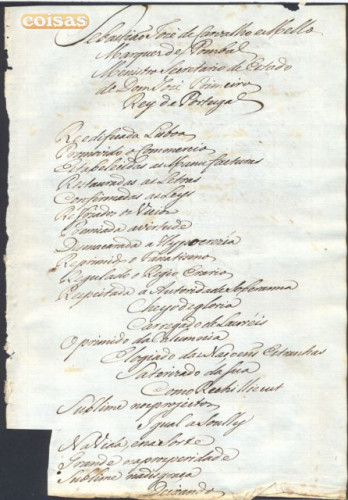 coisas
Sebastião Jozé de Carvalho e Mello
Marquez de Pombal
Ministro Secretario de Estado
de Dom Jozé Primeiro
Rey de Portugal
Reedificada Lisboa
Promovido o Commercio
Estabelecidas as Manufacturas
Restauradas as Letras
Confirmadas as Leys
Refreado o Vicio
Premiada a virtude
Desmacarada a Hypocrezia
Reprimido o Fanatismo
Regulado o Regio Erario
Respeitada a Autoridade Soberanna
Cheyo de gloria
Carregado de Laureis
Oprimido da Calumnia
Elogiado das Naçoens Estranhas
Como Reschillieut
Sublime nos projetos
Igual a Soully
Na Vida, e na Morte
Grande na prosperidade
Sublime na disgraça